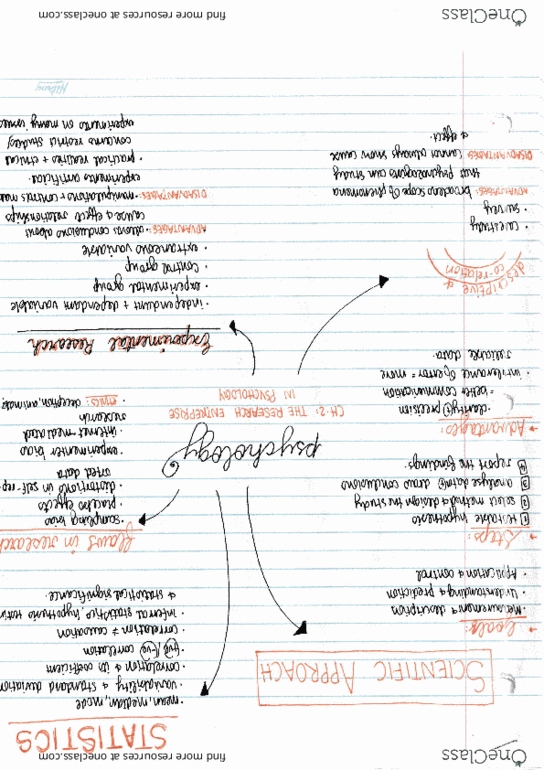 OneClass
find more resources at oneclass.com
STATISTICS
• mean, median, mode
• variability & standard deviation
• correlation & its coefficient
• +ve/-ve correlation
• correlation ≠ causation
• inferential statistics, hypothesis testin
& statistical significance.
SCIENTIFIC APPROACH
→ Goals:
· Measurement & description
· Understanding & prediction
· Application & control
→ Steps:
1 testable hypothesis
2 select method & design the study
3 analyse data & draw conclusions
4 report the findings.
→ Advantages:
clarity & precision
= better communication
· intolerance of error = more
reliable data.
flaws in research
• sampling bias
• placebo effects
• distortions in self-rep
orted data
• experimenter bias
• internet mediated
research
• ETHICS: deception, animals
psychology
CH-2: THE RESEARCH ENTREPRISE
IN PSYCHOLOGY
Experimental Research
• independent + dependant variable
• experimental group
• control group
• extraneous variable
ADVANTAGES: allows conclusions about
cause & effect relationships
DISADVANTAGES: manipulations + controls make
experiments artificial.
• practical realities + ethical
concerns restrict studies/
experiments on many issues
descriptive &
co-relation
• casestudy
• survey
ADVANTAGES: broadens scope of phenomena
that psychologists can study
DISADVANTAGES: cannot always show cause
& effect.
OneClass
find more resources at oneclass.com